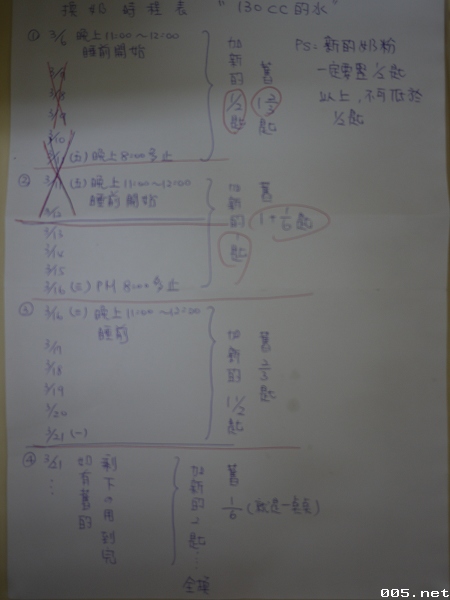 換奶時程表 "130cc的水"
PS: 新的奶粉
一定要畫 1/2匙
以上,不可低於
1/2匙
① 3/6 晚上11:00~12:00
睡前開始
3/7
3/8
3/9
3/10
3/11 (五) 晚上 8:00多止
加新的 1/2 匙
舊 1 2/3 匙
② 3/11 (五) 晚上11:00~12:00
睡前開始
3/12
3/13
3/14
3/15
3/16 (三) PM 8:00多止
加新的 1 匙
舊 1+1/6匙
③ 3/16 (三) 晚上11:00~12:00
睡前
3/17
3/18
3/19
3/20
3/21 (一)
加新的 1 1/2 匙
舊 2/3 匙
④ 3/21
奶有舊的
剩下の用到完
加新的2匙……全換
舊 1/6 (就這一點點)
005.net